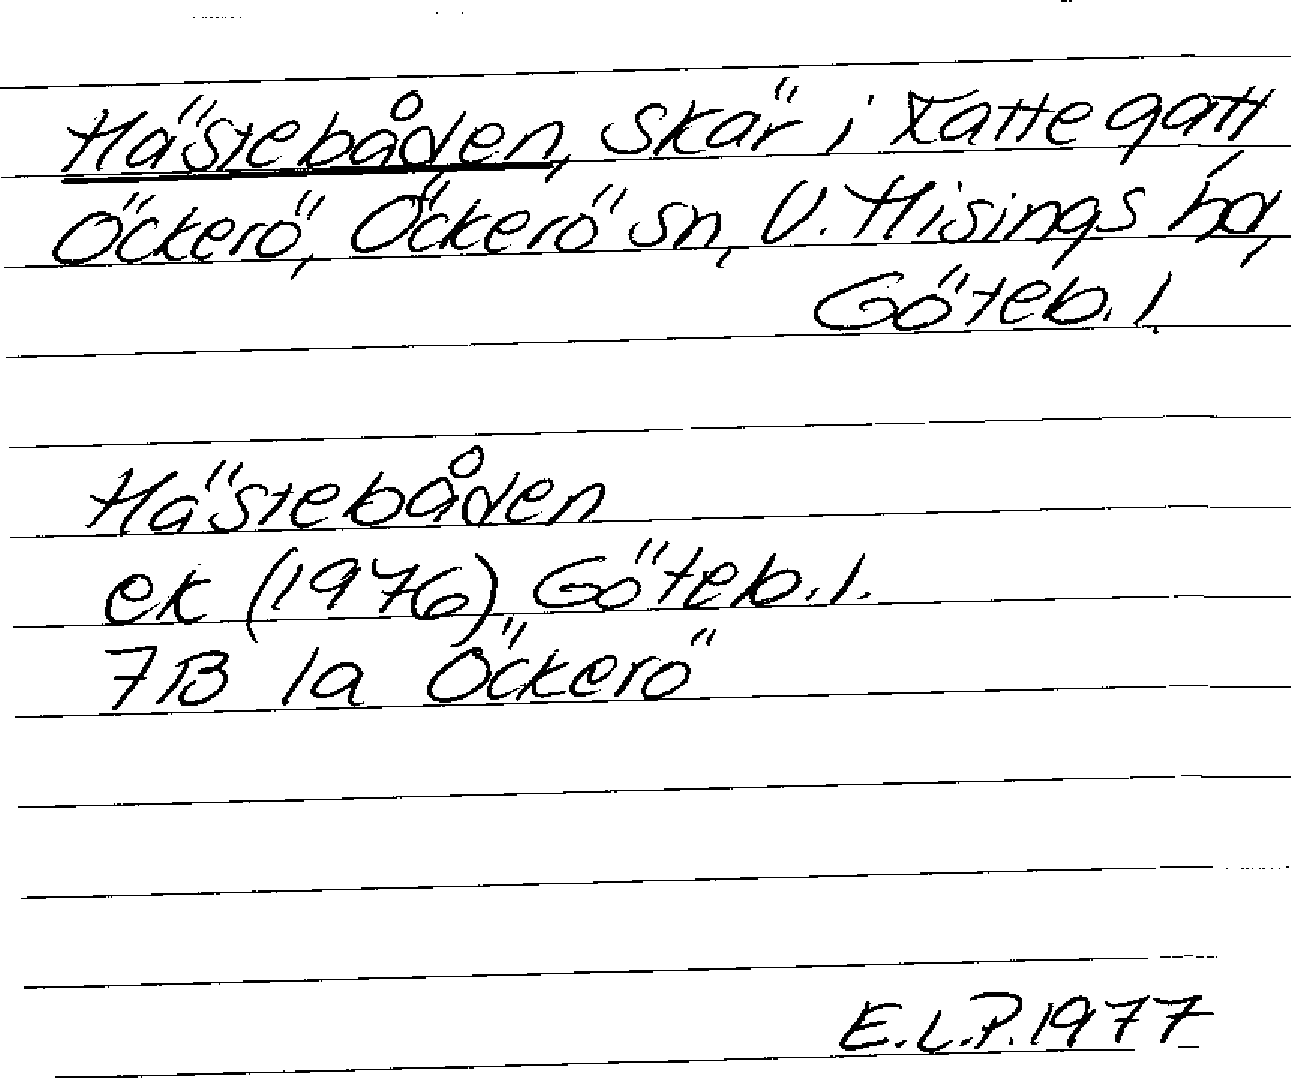 Hästebåden, skär i Kattegatt
Öckerö, Öckerö sn, V. Hisings hd,
Göteb. l.
Hästebåden
ek (1976) Göteb. l.
7B 1a Öckerö
E.L.P. 1977